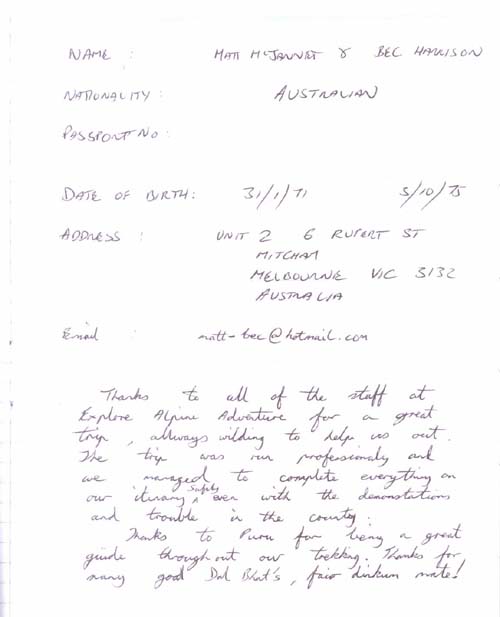 NAME : MATT McJANNET & BEC HARRISON
NATIONALITY : AUSTRALIAN
PASSPORT NO :
DATE OF BIRTH : 31/1/71 5/10/75
ADDRESS : UNIT 2 6 RUPERT ST
MITCHAM
MELBOURNE VIC 3132
AUSTRALIA
Email : matt-bec@hotmail.com
Thanks to all of the staff at
Explore Alpine Adventure for a great
trip, allways wilding to help us out.
The trip was run professionaly and
we managed to complete everything on
our itinary safely even with the demonstations
and trouble in the country.
Thanks to Puru for being a great
guide throughout our trekking. Thanks for
many good Dal Bhat's, fair dinkum mate!